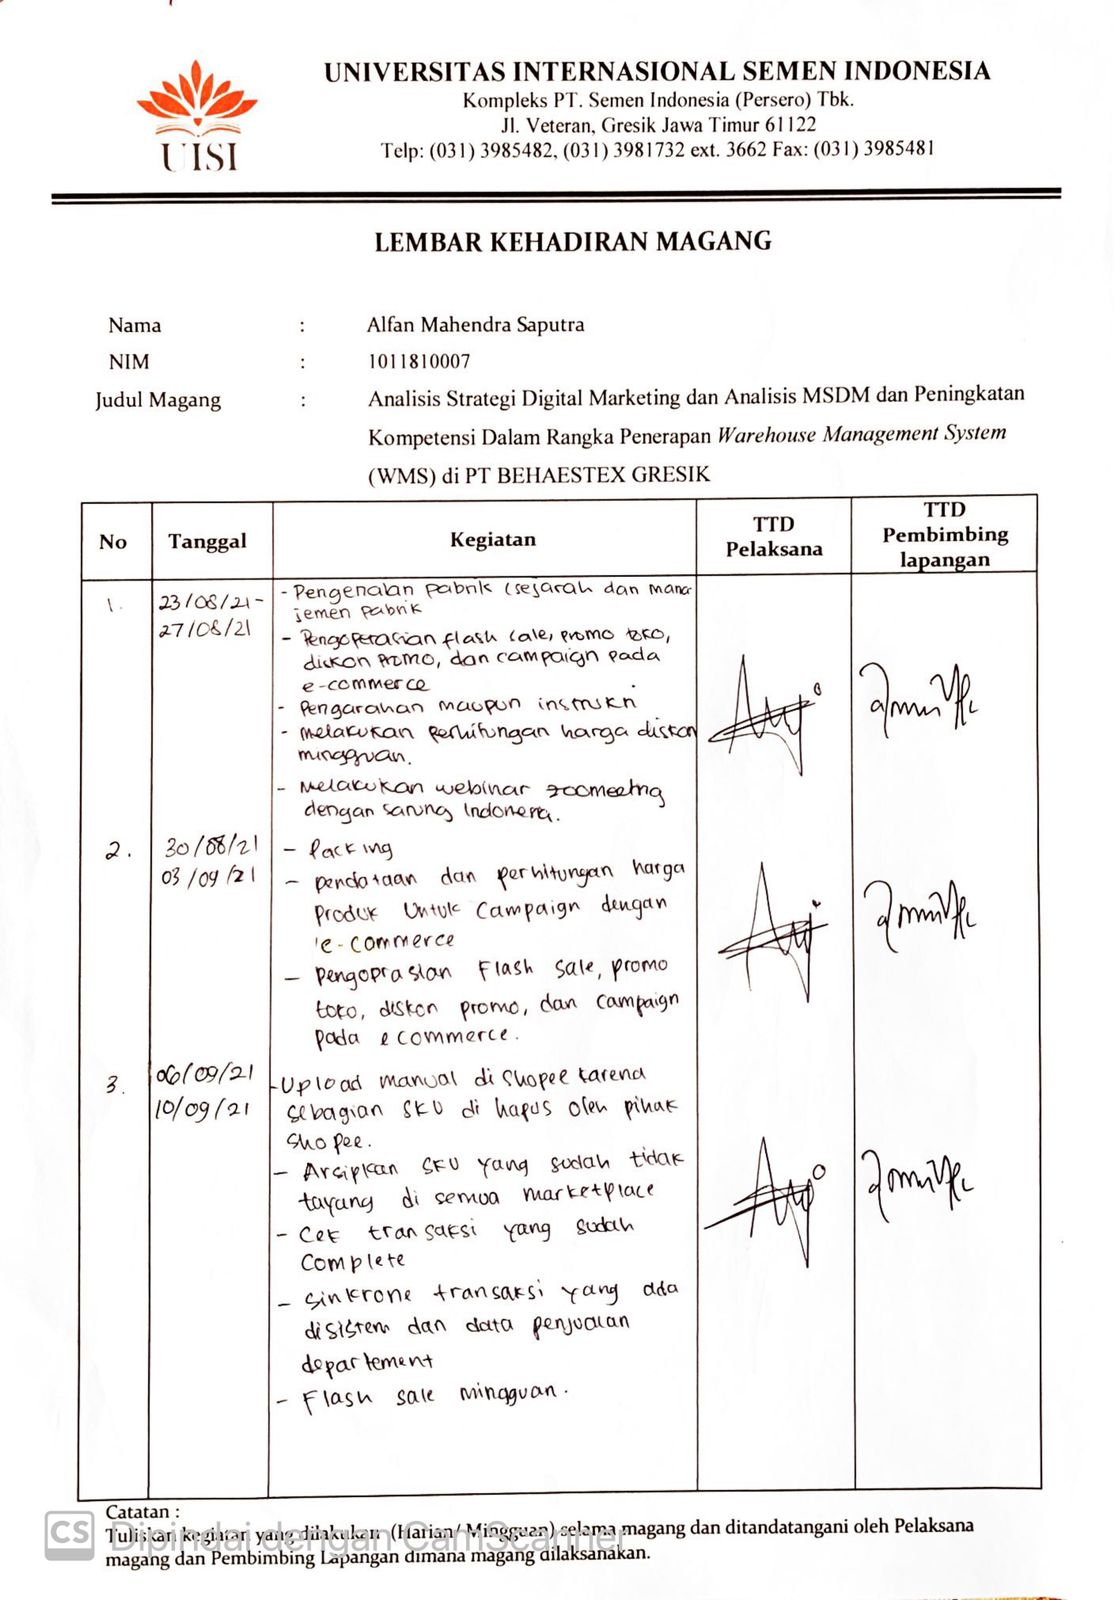 UISI
UNIVERSITAS INTERNASIONAL SEMEN INDONESIA
Kompleks PT. Semen Indonesia (Persero) Tbk.
Jl. Veteran, Gresik Jawa Timur 61122
Telp: (031) 3985482, (031) 3981732 ext. 3662 Fax: (031) 3985481
LEMBAR KEHADIRAN MAGANG
Nama : Alfan Mahendra Saputra
NIM : 1011810007
Judul Magang : Analisis Strategi Digital Marketing dan Analisis MSDM dan Peningkatan
Kompetensi Dalam Rangka Penerapan Warehouse Management System
(WMS) di PT BEHAESTEX GRESIK
No Tanggal Kegiatan TTD Pelaksana TTD Pembimbing lapangan
1. 23/08/21 -
27/08/21
- Pengenalan pabrik (sejarah dan mana
jemen pabrik
- Pengoperasian flash sale, promo toko,
diskon promo, dan campaign pada
e-commerce
- Pengarahan maupun instruksi
- melakukan perhitungan harga diskon
mingguan.
- Melakukan webinar zoomeeting
dengan sarung Indonesia.
2. 30/08/21
03/09/21
- Packing
- pendataan dan perhitungan harga
produk Untuk Campaign dengan
e-commerce
- Pengoprasian Flash sale, promo
toko, diskon promo, dan campaign
pada e commerce.
3. 06/09/21
10/09/21
- Upload manual di shopee karena
sebagian SKU di hapus oleh pihak
shopee.
- Arsipkan SKU yang sudah tidak
tayang di semua marketplace
- Cek transaksi yang sudah
Complete
- Sinkrone transaksi yang ada
disistem dan data penjualan
departement
- Flash sale mingguan.
Catatan :
Tuliskan kegiatan yang dilakukan (Harian/ Mingguan) selama magang dan ditandatangani oleh Pelaksana
magang dan Pembimbing Lapangan dimana magang dilaksanakan.
CS Dipindai dengan CamScanner